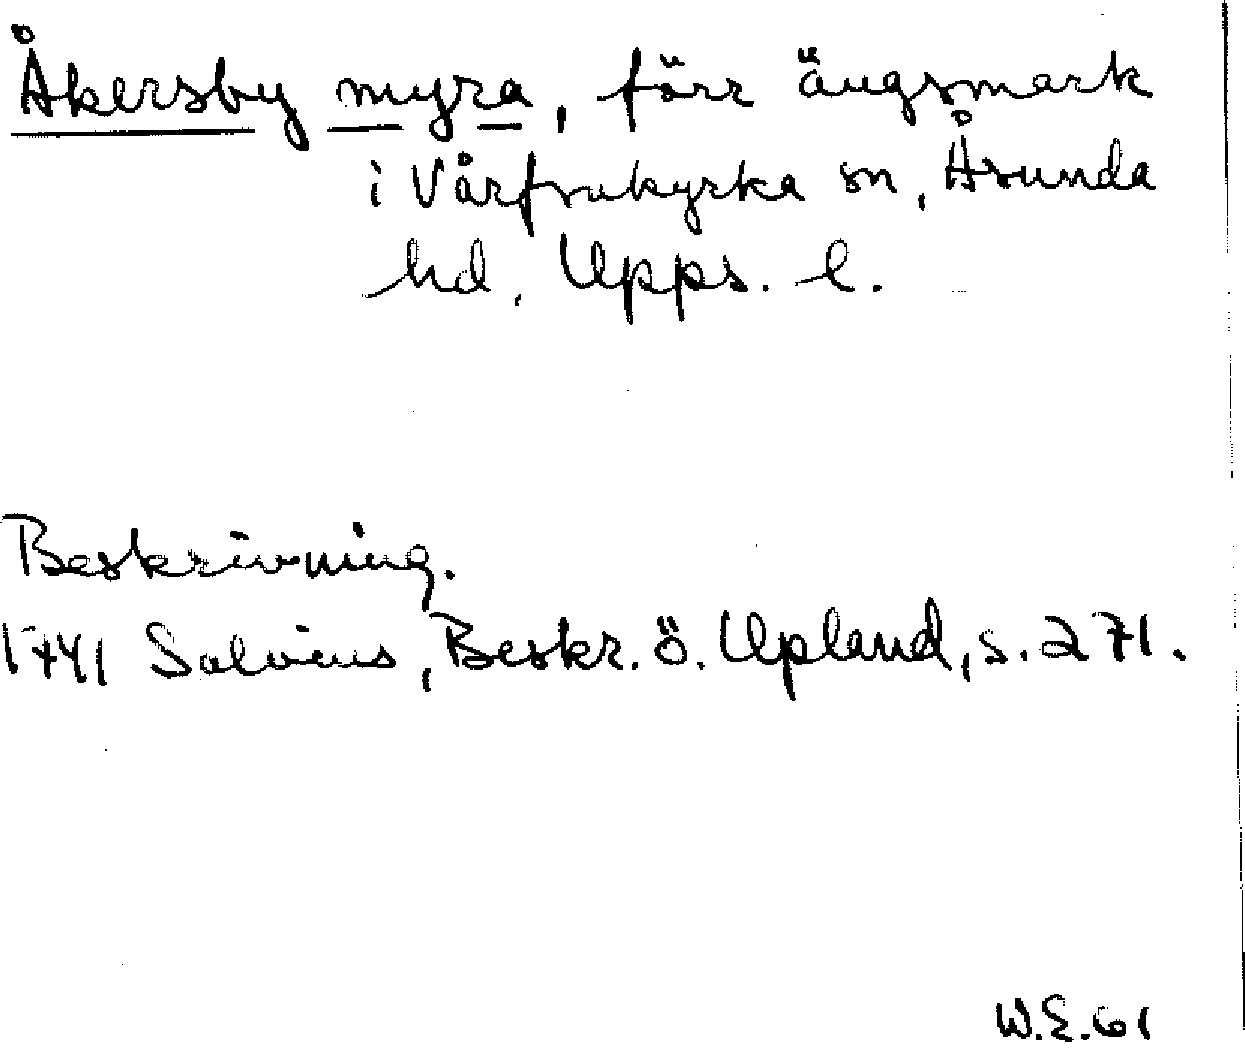 Åkersby myra, förr ängsmark
i Vårfrukyrka sn, Åsunda
hd, Upps. l.
Beskrivning.
1741 Salvius, Beskr. ö. Upland, s. 271.
W.E.61